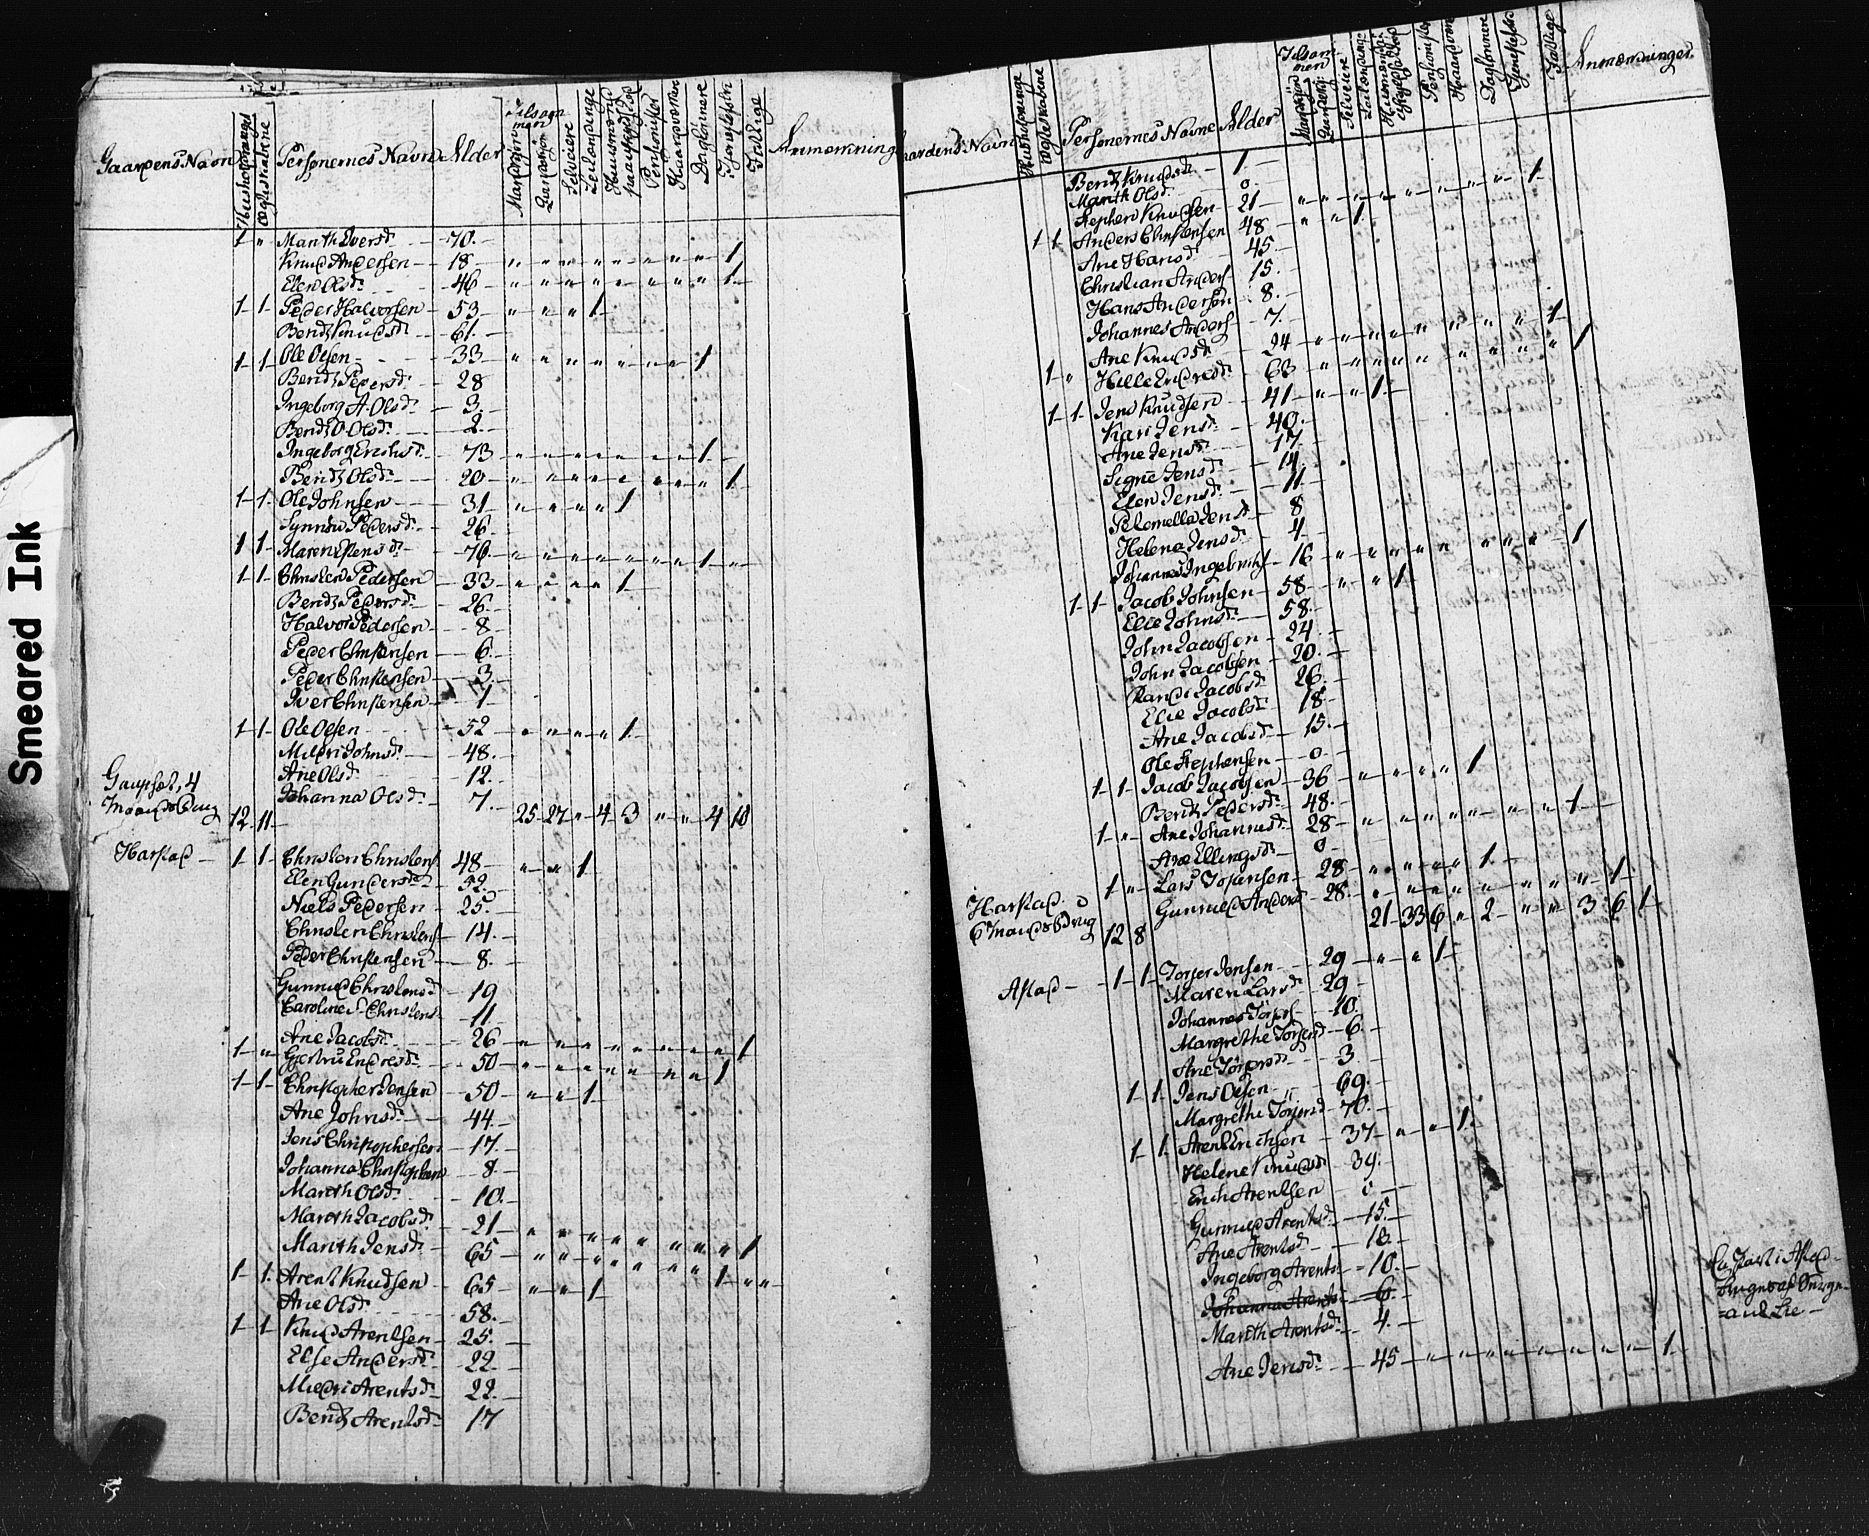 Smeared Ink
Gaardens Navn Huusholdninger Ægteskabene Personernes Navn Alder Tilsammen Mandkjøn Qvindekjøn Selveiere Leilændinge Huusmænd Pensionister Haandværker Daglønnere Tjenestefolk Fattige Anmærkning
1 " Marith Iversd. 70.
Knud Andersen 18 " " " " " " " " 1
Elen Olsd. 46 " " " " " " " " 1
1 1 Peder Halvorsen 53 " " " 1
Berith Knudsd. 61.
1 1 Ole Olsen 33 " " " " " " " 1
Berith Pedersd. 28
Ingeborg A. Olsd. 3
Berith O. Olsd. 2.
Ingeborg Erichsd. 73 " " " " " " " 1
Berith Olsd. 20 " " " " " " " " 1
1 1 Ole Johnsen 31 " " " " 1
Synnøv Pedersd. 26
1 1 Maren Estensd. 76 " " " " " " " 1 "
1 1 Christen Pedersen 33 " " " " 1
Berith Pedersd. 26.
Halvor Pedersen 8
Peder Christensen 6.
Peder Christensen 3.
Iver Christensen 1
1 1 Ole Olsen 52 " " " " 1
Mildri Johnsd. 48.
Ane Olsd. 12.
Johanna Olsd. 7.
Gaupset, 4
Mands Brug 12 11 25 27 " 4 3 " " 4 10
Harstad 1 1 Christen Christens. 48 " " 1
Elen Gundersd. 52.
Niels Pedersen 25.
Christen Christens. 14.
Peder Christensen 8.
Gunnild Christensd. 19
Caroline S. Christens. 11
Ane Jacobsd. 26 " " " " " " " " 1
1 " Gjertru Endresd. 50 " " " " " " " 1
1 1 Christopher Jensen 50 " " 1
Ane Johnsd. 44.
Jens Christophersen 17.
Johanna Christophers. 8
Marith Olsd. 10.
Marith Jacobsd. 21 " " " " " " " " 1
Marith Jensd. 65 " " " " " " " 1 " "
1 1 Arent Knudsen 65 " " 1
Ane Olsd. 58.
1 1 Knud Arentsen 25.
Else Andersd. 22
Mildri Arentsd. 22.
Berith Arentsd. 17
Gaardens Navn Huusholdninge Ægteskabene Personernes Navne Alder Tilsammen Mandkjøn Qvindkjøn Selveiere Leilændinge Huusmænd Pensionister Haandværk Daglønnere Tjenestefolk Fattige Anmærkninger
Berith Knudsd. 1
Marith Olsd. 0
Stephen Knudsen 21 " " " " " " " " 1
1 1 Anders Christensen 48 " " 1
Ane Hansd. 45.
Christian Anders. 15.
Hans Andersen 8.
Johannes Anders. 7.
Ane Knudsd. 24 " " " " " " " " 1
1 " Hille Endresd. 63 " " " " " " " " " 1
1 1 Jens Knudsen 41 " " 1
Kari Jensd. 40.
Ane Jensd. 17.
Signe Jensd. 14.
Elen Jensd. 11
Petomella Jensd. 8
Helena Jensd. 4
Johannes Ingebrichts. 16 " " " " " " " " 1
1 1 Jacob Johnsen 58 " " 1
Elie Johnsd. 58.
John Jacobsen 24.
John Jacobsen 20.
Randi Jacobsd. 26.
Elie Jacobsd. 18
Ane Jacobsd. 15.
Ole Stephensen 0
1 1 Jacob Jacobsen 36 " " " " 1
Berith Pedersd. 48.
1 " Ane Johannesd. 28 " " " " " " " 1
Ane Ellingsd. 0
1 " Lars Torgersen 28 " " " " 1
Gunnild Andersd. 28 " " " " " " " " 1
Harstad
6 Mands Brug 12 8 21 33 6 " 2 " " 3 6 1
Astad 1 1 Torger Jensen 29 " " 1
Maren Larsd. 29
Johannes Torgers. 10.
Margrethe Torgersd. 6.
Ane Torgersd. 3.
1 1 Jens Olsen 69.
Margrethe Torgersd. 70.
1 1 Arent Erichsen 37 " " 1
Helene Knudsd. 39.
Erich Arentsen 0
Gunnild Arentsd. 15.
Ane Arentsd. 12.
Ingeborg Arents. 10.
Johanna Arents. 6.
Marith Arentsd. 4.
Ane Jensd. 45 " " " " " " " " 1
En Part i Astad
bruges af